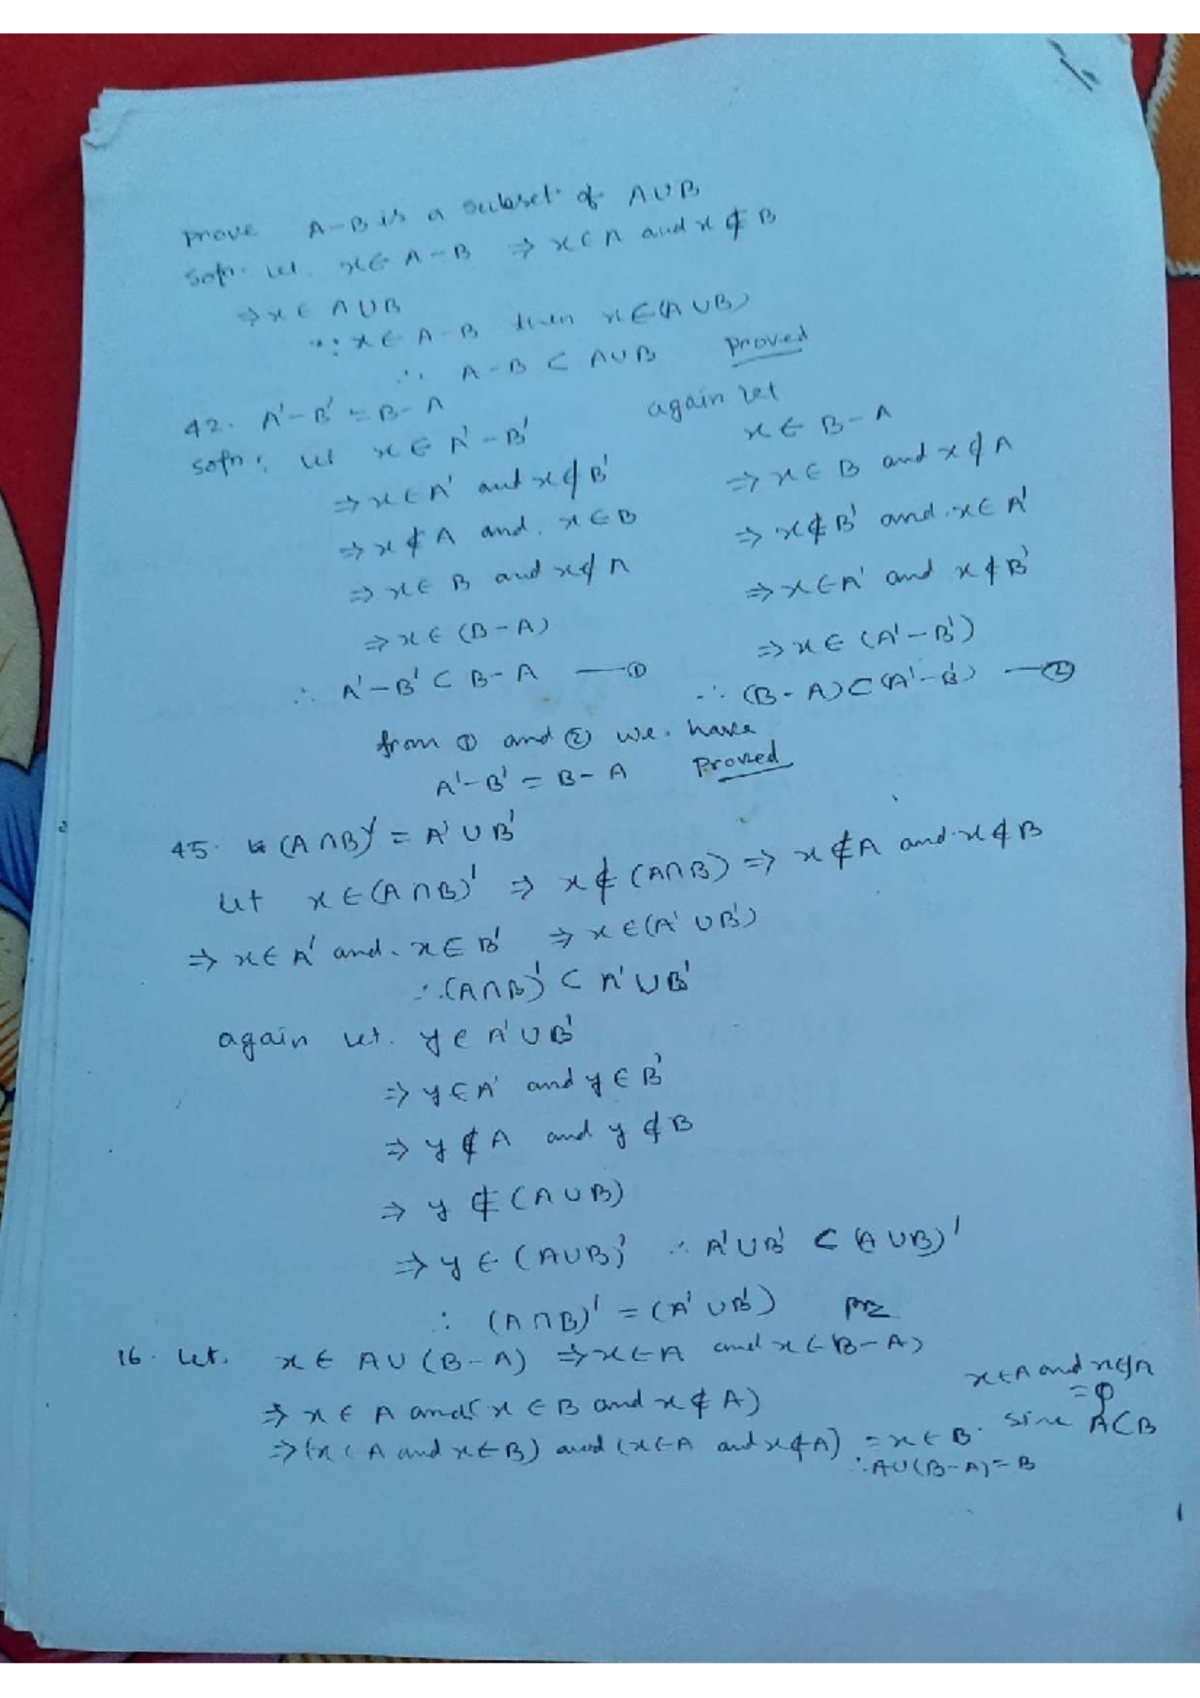 prove A-B is a subset of A∪B
Soln. Let. x∈ A-B ⇒ x∈A and x∉B
⇒x∈ A∪B
∵ x∈ A-B then x∈(A∪B)
∴ A-B ⊂ A∪B proved
42. A'-B' = B-A
Soln: Let x∈ A'-B'
⇒x∈A' and x∉B'
⇒x∉A and. x∈B
⇒x∈ B and x∉A
⇒x∈ (B-A)
∴ A'-B' ⊂ B-A —①
again let
x∈ B-A
⇒x∈ B and x∉A
⇒x∉B' and.x∈A'
⇒x∈A' and x∉B'
⇒x∈ (A'-B')
∴ (B-A)⊂(A'-B') —②
from ① and ② we. have
A'-B' = B-A Proved
45. (A∩B)' = A'∪B'
Let x∈(A∩B)' ⇒ x∉(A∩B) ⇒ x∉A and x∉B
⇒ x∈A' and. x∈B' ⇒ x∈(A'∪B')
∴(A∩B)' ⊂ A'∪B'
again let. y∈ A'∪B'
⇒ y∈A' and y∈B'
⇒ y∉A and y∉B
⇒ y∉(A∪B)
⇒ y∈(A∪B)' ∴ A'∪B' ⊂ (A∪B)'
∴ (A∩B)' = (A'∪B')
16. Let. x∈ A∪(B-A) ⇒x∈A and x∈B-A)
⇒ x∈A and(x∈B and x∉A)
⇒(x∈A and x∈B) and (x∈A and x∉A) = x∈B.
x∈A and x∉A
=φ
since A⊂B
∴A∪(B-A)=B